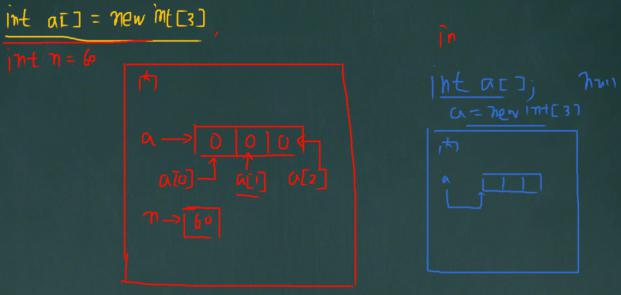 int a[] = new int[3]
int n = 60
内
a → 0 0 0
a[0] a[1] a[2]
n → 60
in
int a[]; null
a = new int[3]
内
a